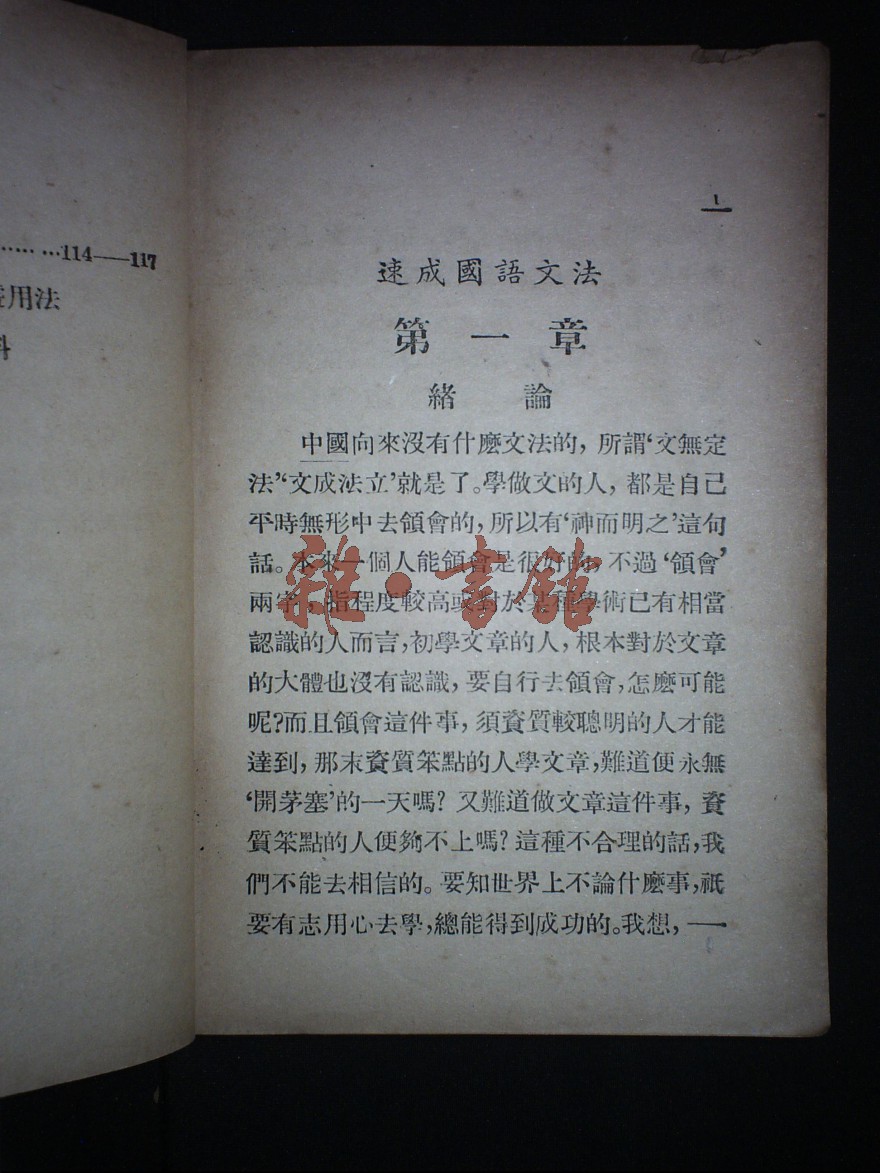 …… …114——117
用法
1
速成國語文法
第一章
緒論
中國向來沒有什麼文法的，所謂‘文無定
法’‘文成法立’就是了。學做文的人，都是自己
平時無形中去領會的，所以有‘神而明之’這句
話。本來一個人能領會是很好的，不過‘領會’
兩字，指程度較高或對於某種學術已有相當
認識的人而言，初學文章的人，根本對於文章
的大體也沒有認識，要自行去領會，怎麼可能
呢？而且領會這件事，須資質較聰明的人才能
達到，那末資質笨點的人學文章，難道便永無
‘開茅塞’的一天嗎？又難道做文章這件事，資
質笨點的人便夠不上嗎？這種不合理的話，我
們不能去相信的。要知世界上不論什麼事，祇
要有志用心去學，總能得到成功的。我想，一
雜·書館